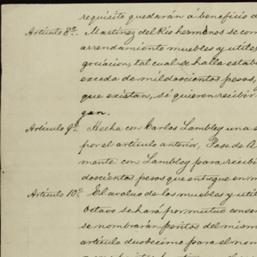 requisito quedarán á beneficio d
Artículo 8º. Martinez del Rio hermanos se com
arrendamiento muebles y utiles
gociacion, tal cual se halla estab
exceda de mil doscientos pesos,
que existan, si quieren recibir
gan.
Artículo 9º. Hecha con Carlos Lambley una e
por el artículo anterior, Jose de A
mente con Lambley para recibir
doscientos pesos que entregue en m
Artículo 10º. El avaluo de los muebles y util
octavo se hará por mutuo conse
se nombrarán peritos del mismo
artículo duodecimo para el nom